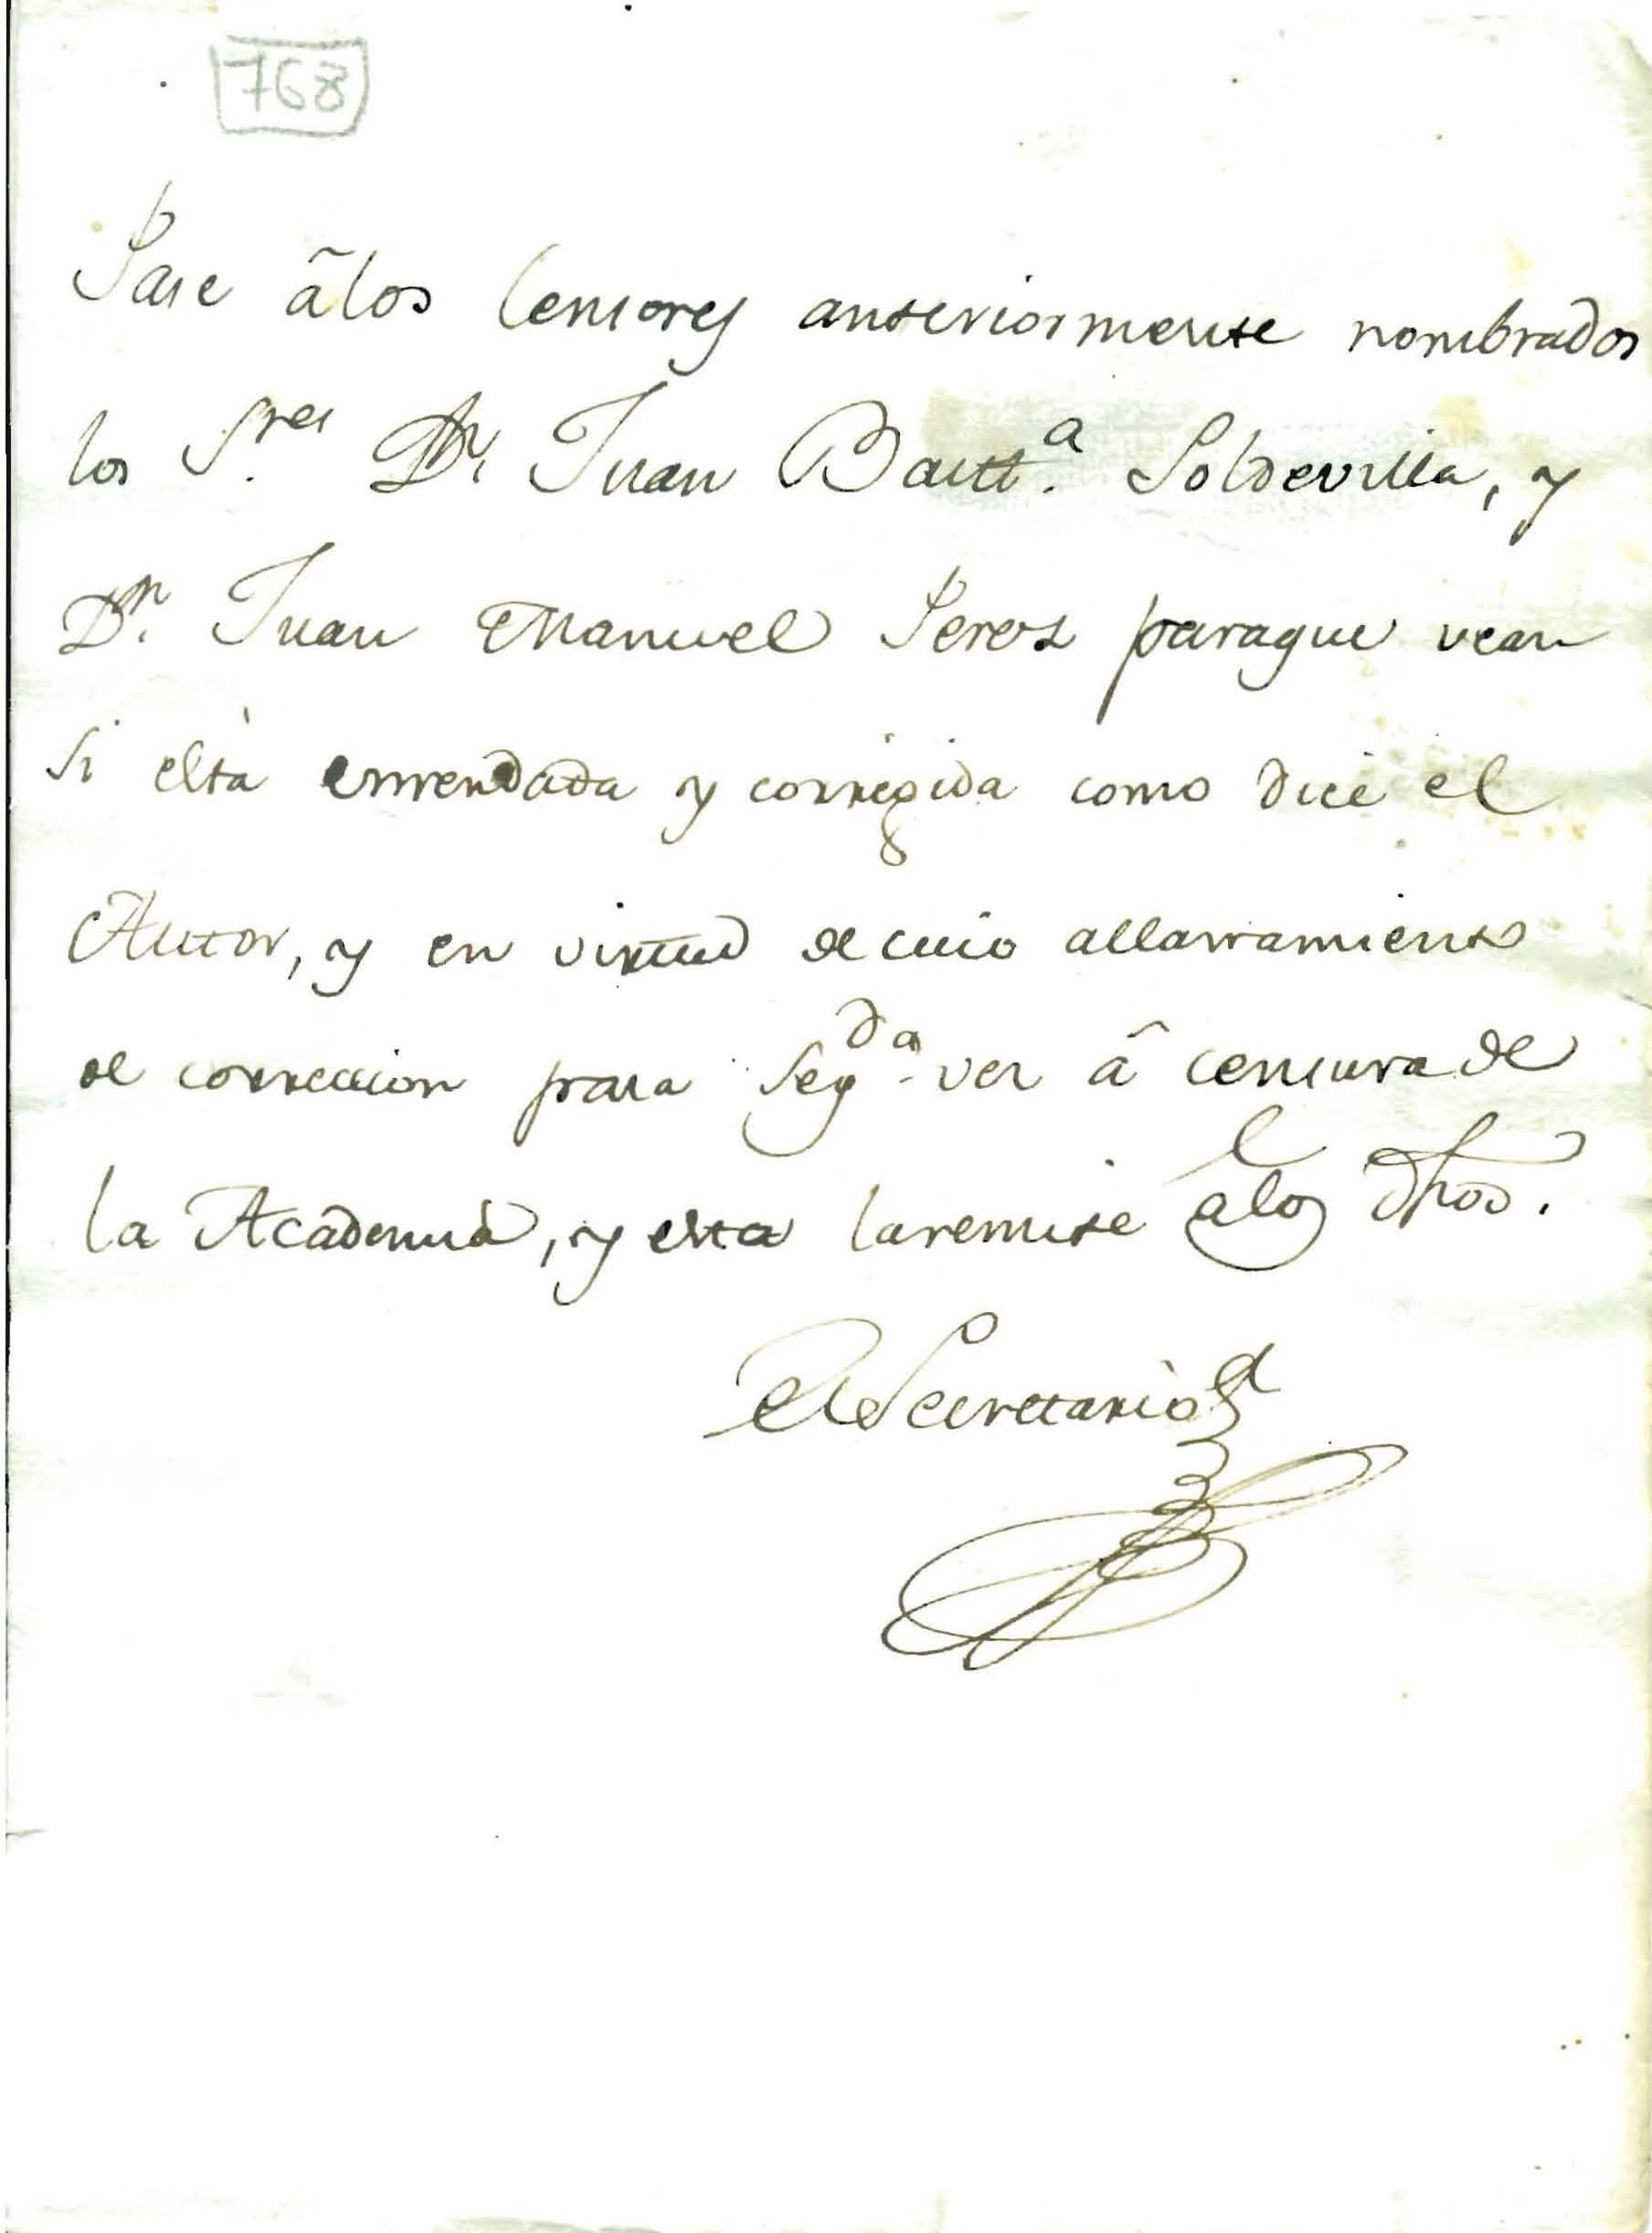 768
Pase â los Censores anteriormente nombrados
los S.res Dn. Juan Bautt.a Soldevilla, y
Dn. Juan Manuel Peres paraque vean
si està enmendada y corregida como dice el
Autor, y en virtud de cuio allanamiento
de correccion pasa seg.da ves â censura de
la Academia, y esta laremite alos dhos.
El Secretario